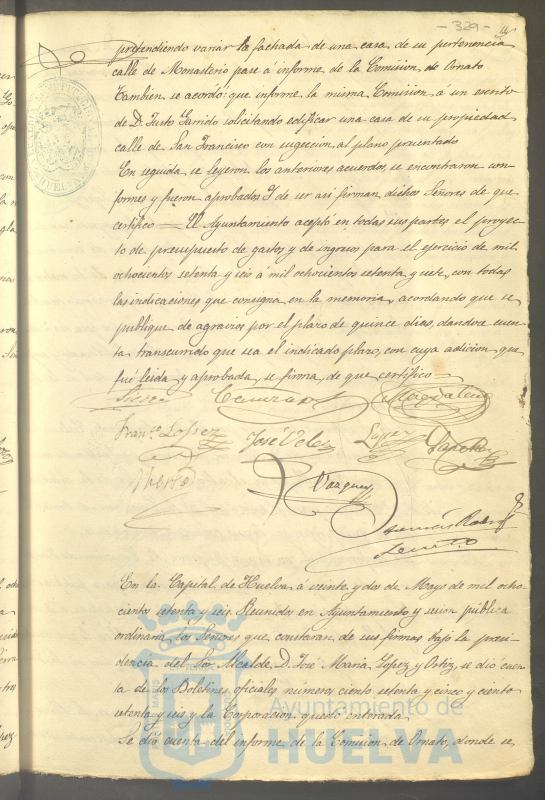 - 329 -
pretendiendo variar la fachada de una casa de su pertenencia
calle de Monasterio pase á informe de la Comision de Ornato
Tambien se acordó que informe la misma Comision á un escrito
de D. Justo Garrido solicitando edificar una casa de su propiedad
calle de San Francisco con sugeccion al plano presentado
En seguida se leyeron los anteriores acuerdos, se encontraron con-
formes y fueron aprobados Y de ser asi firman dichos Señores de que
certifico — El Ayuntamiento aceptó en todas sus partes el proyec-
to de presupuesto de gastos y de ingresos para el ejercicio de mil
ochocientos setenta y seis á mil ochocientos setenta y siete, con todas
las indicaciones que consigna en la memoria, acordando que se
publique de agravios por el plazo de quince dias, dandose cuen-
ta transcurrido que sea el indicado plazo, con cuya adicion que
fué leida y aprobada, se firma, de que certifico
Magdalena
Franco Lopez José Velez Lopez Garcia
Vazquez
En la Capital de Huelva á veinte y dos de Mayo de mil ocho-
cientos setenta y seis Reunidos en Ayuntamiento y sesion publica
ordinaria los Señores que constaran de sus firmas bajo la presi-
dencia del Sor Alcalde D. José Maria Lopez y Ortiz, se dió cuen-
ta de los Boletines oficiales numeros ciento setenta y cinco y ciento
setenta y seis y la Corporacion quedó enterada
Se dió cuenta del informe de la Comision de Ornato, donde se
Ayuntamiento de
HUELVA